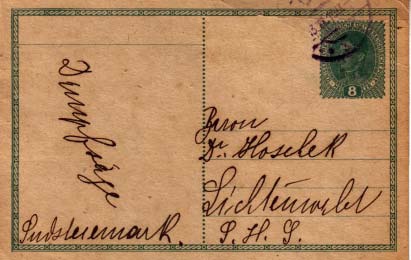 Dampfsäge
Südsteiermark.
8
Herrn
Dr. Hoschek
Lichtenwald
S. H. S.